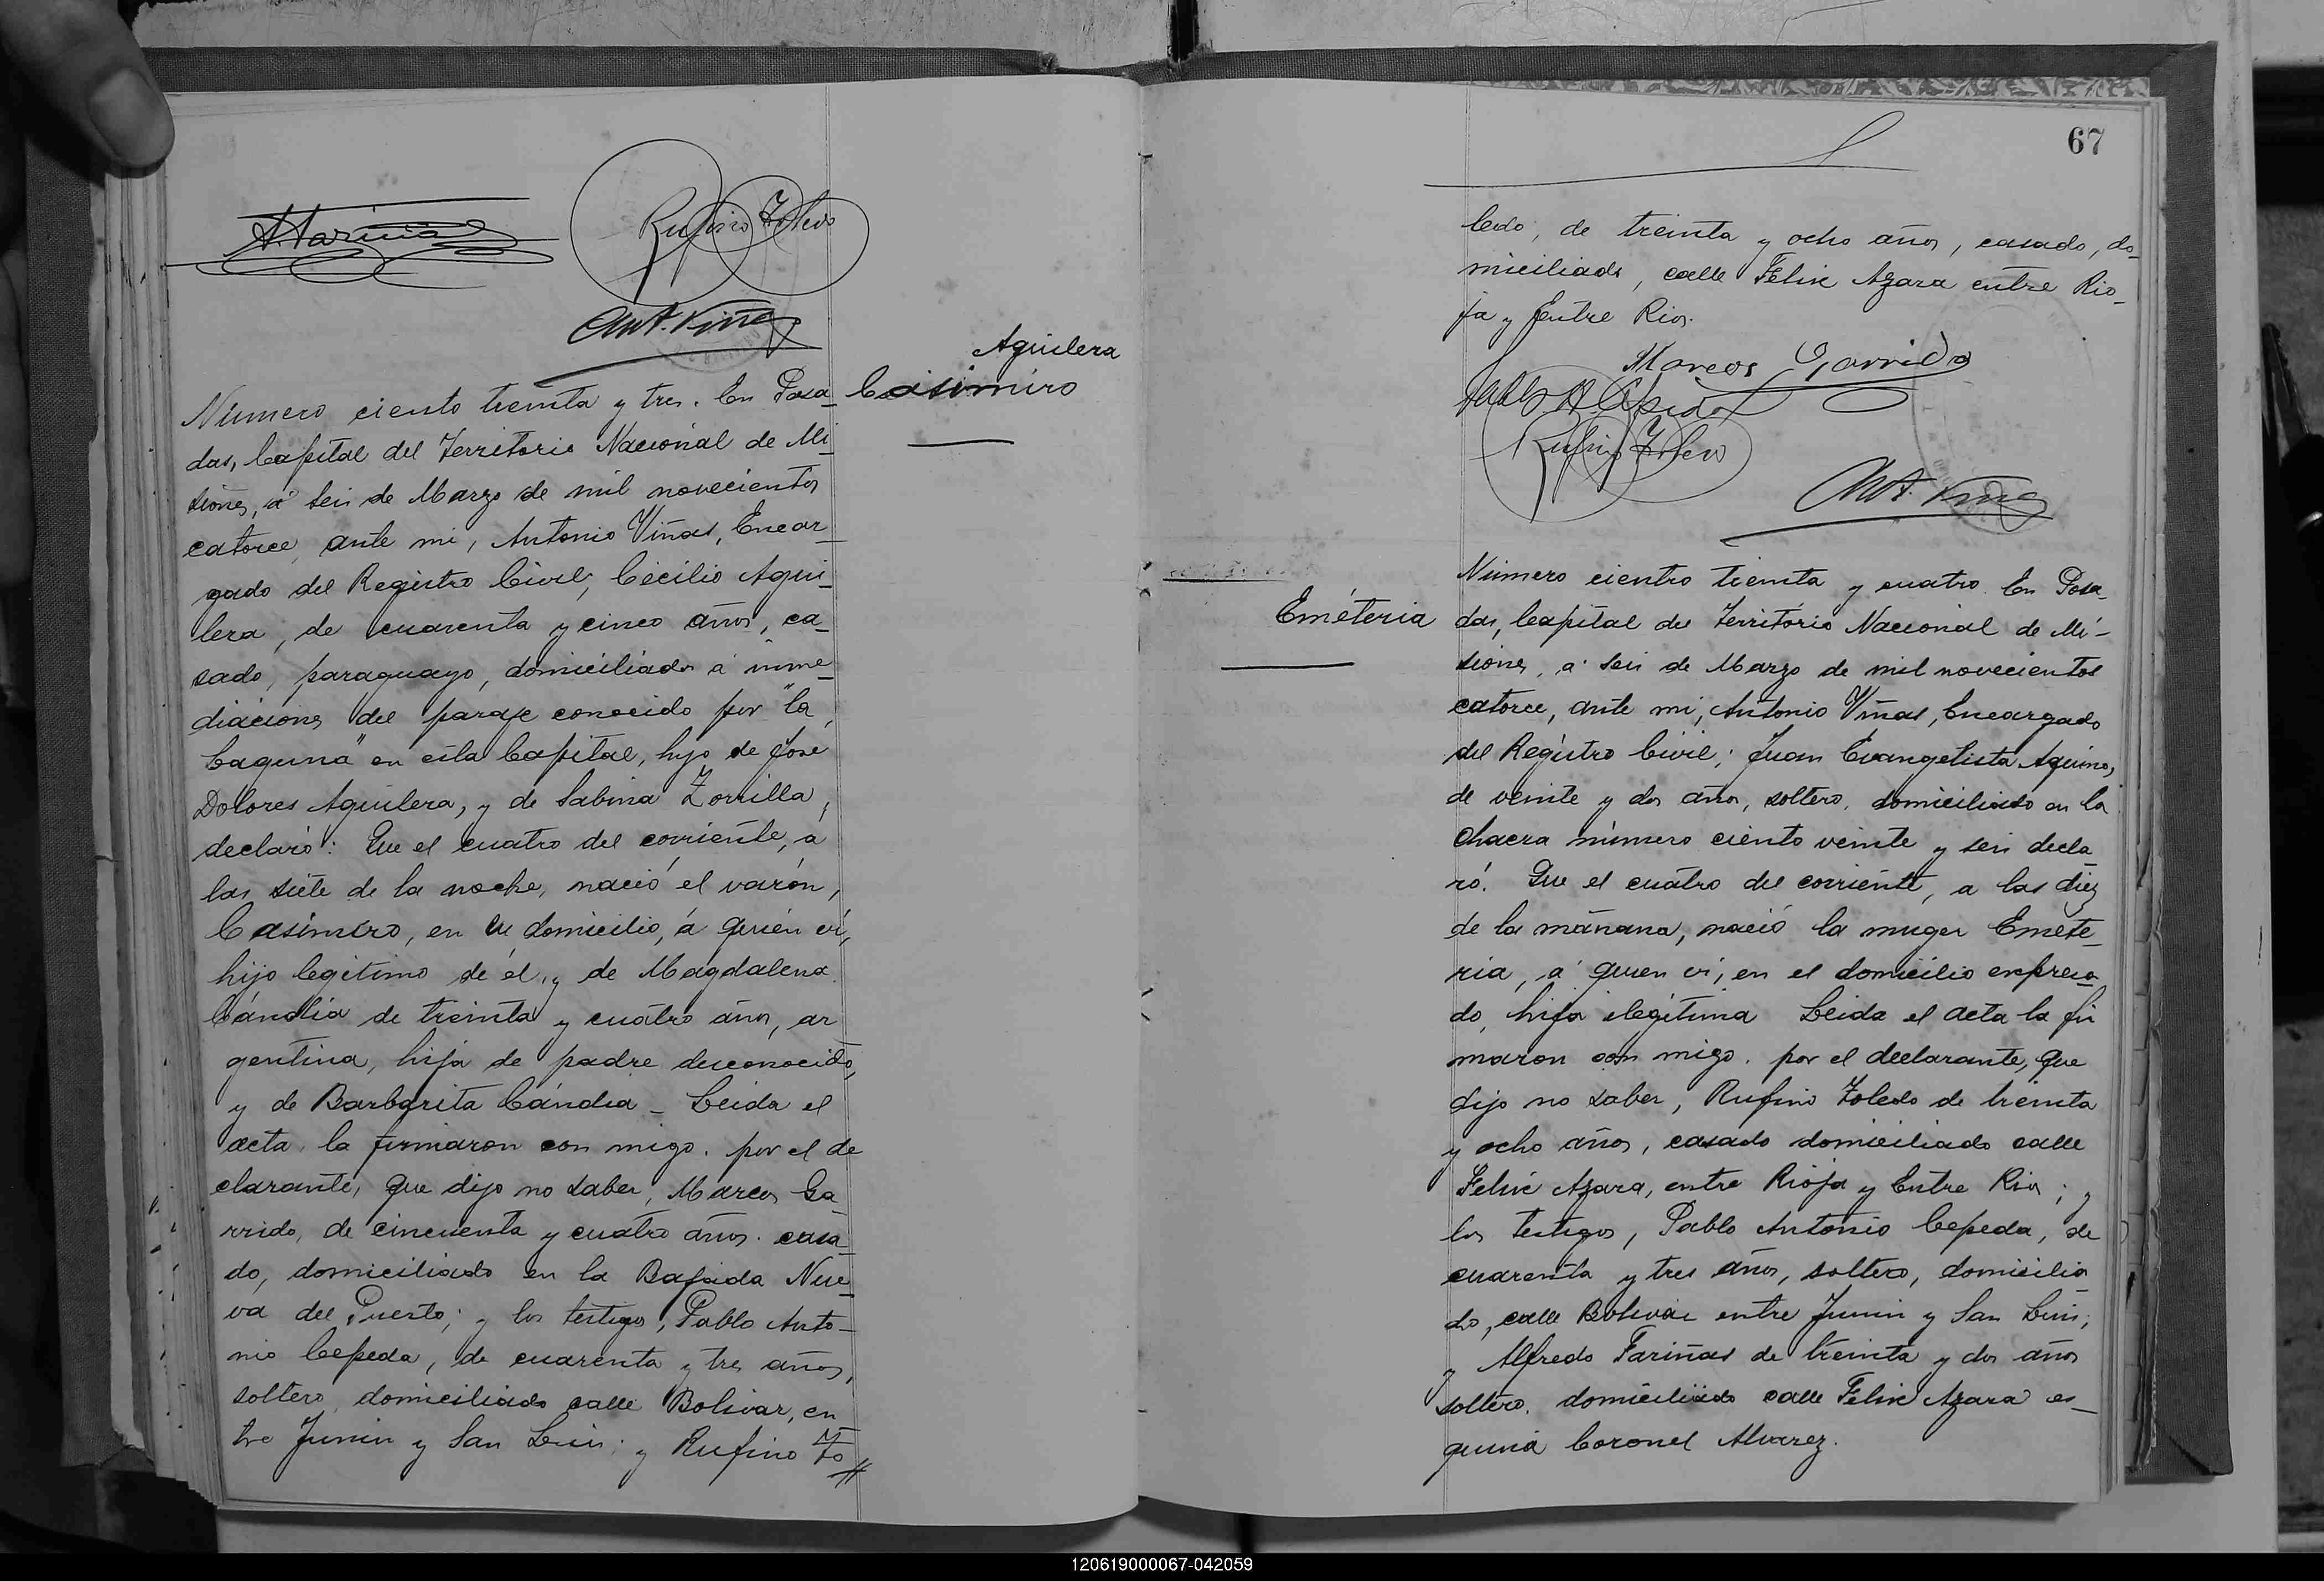 A. Fariñas
Rufino Toledo
Ant. Viñas
Aguilera
Casimiro
Número ciento treinta y tres. En Posa_
das, Capital del Territorio Nacional de Mi_
siones, á seis de Marzo de mil novecientos
catorce, ante mi, Antonio Viñas, Encar_
gado del Registro Civil, Cecilio Agui_
lera, de cuarenta y cinco años, ca_
sado, paraguayo, domiciliado á inme_
diaciones del paraje conocido por "la
Laguna" en esta Capital, hijo de José
Dolores Aguilera, y de Sabina Zorrilla,
declaró: Que el cuatro del corriente, á
las siete de la noche, nació el varón,
Casimiro, en su domicilio, á quién ví,
hijo legítimo de él, y de Magdalena
Cándia de treinta y cuatro años, ar
gentina, hija de padre desconocido,
y de Barbarita Cándia _ Leida el
acta, la firmaron con migo. por el de
clarante, que dijo no saber, Marcos Ga_
rrido, de cincuenta y cuatro años. casa_
do, domiciliado en la Bajada Nue_
va del Puerto; y los testigos, Pablo Anto_
nio Cepeda, de cuarenta y tres años,
soltero, domiciliado calle Bolivar, en_
tre Junin y San Luis; y Rufino To_
67
ledo, de treinta y ocho años, casado, do_
miciliado, calle Felix Azara entre Rio_
ja y Entre Rios.
Marcos Garrido
Pablo A. Cepeda
Rufino Toledo
Ant. Viñas
Emeteria
Número cientro treinta y cuatro. En Posa_
das, Capital del Territorio Nacional de Mi_
siones, a seis de Marzo de mil novecientos
catorce, ante mi, Antonio Viñas, Encargado
del Registro Civil; Juan Evangelista Aquino,
de veinte y dos años, soltero, domiciliado en la
chacra número ciento veinte y seis decla_
ró. Que el cuatro del corriente, a las diez
de la mañana, nació la muger Emete_
ria, a quien ví, en el domicilio expresa_
do, hija ilegítima Leida el acta la fir
maron con migo. por el declarante, que
dijo no saber, Rufino Toledo de treinta
y ocho años, casado domiciliado calle
Felix Azara, entre Rioja y Entre Rios; y
los testigos, Pablo Antonio Cepeda, de
cuarenta y tres años, soltero, domicilia_
do, calle Bolivar entre Junin y San Luis;
y Alfredo Fariñas de treinta y dos años
soltero. domiciliado calle Felix Azara es_
quina Coronel Alvarez.
120619000067-042059